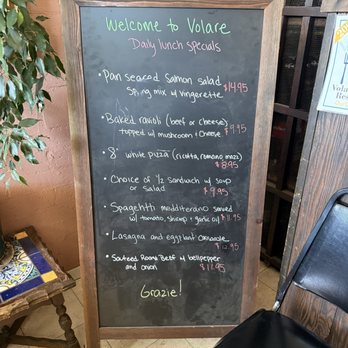 Welcome to Volare
Daily lunch specials
• Pan seared Salmon salad
Spring mix w/ vingerette $14.95
• Baked ravioli (beef or cheese)
topped w/ mushroom + cheese $9.95
• 8" white pizza (ricotta, romano mozz)
$8.95
• Choice of 1/2 sandwich w/ soup
or salad $9.95
• Spagehtti medditerano served
w/ tomato, shrimp & garlic oil
• Lasagna and eggplant casserole
• Sauteed Roama Beef w/ bellpepper
and onion $11.95
Grazie!